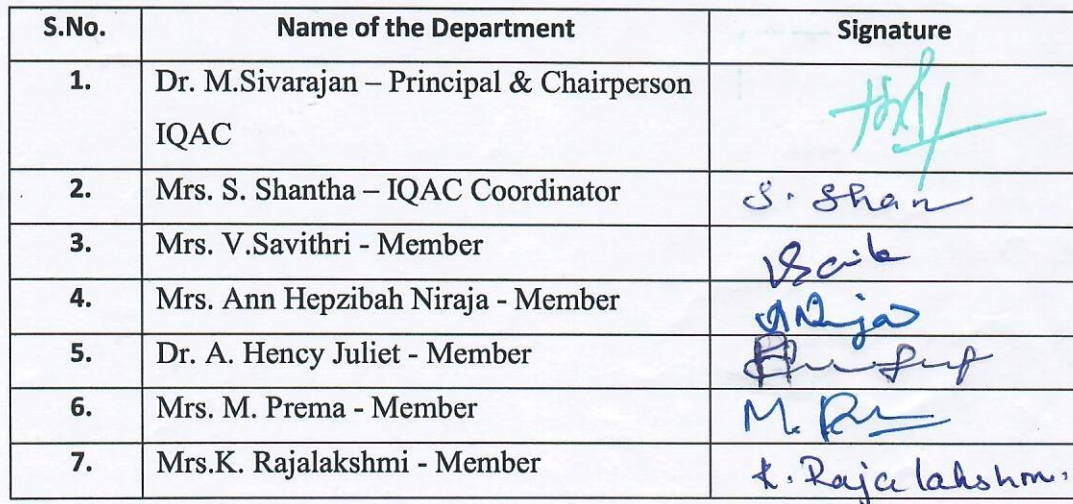 S.No. Name of the Department Signature
1. Dr. M.Sivarajan – Principal & Chairperson
IQAC
2. Mrs. S. Shantha – IQAC Coordinator S. Shan
3. Mrs. V.Savithri - Member
4. Mrs. Ann Hepzibah Niraja - Member
5. Dr. A. Hency Juliet - Member
6. Mrs. M. Prema - Member
7. Mrs.K. Rajalakshmi - Member K. Rajalakshmi